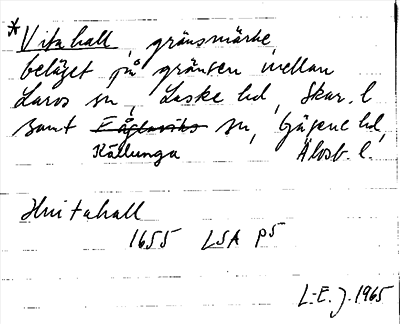 *Vitahall, gränsmärke,
beläget på gränsen mellan
Laros sn, Laske hd, Skar. l
samt Fåglaviks sn, Gäsene hd,
Källunga Älvsb. l.
Hvitahall
1655 LSA P5
L-E. J. 1965